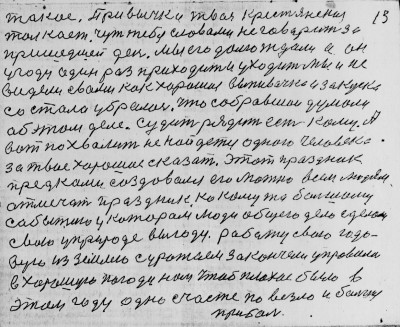 такое. Привычки твоя крестянская 13
толкает. чужебу словами неговорит за
пришедшей ден. мы его доло ждали а он
угоду один раз приходит и уходит мы и не
видели свами как хорошая выпивачка и закуска
со стола убрали. что собравшая думали
обэтом деле. Судит рядит ест кому. А
вот похвалит не найдетца одного человека
за твое хорошая сказат. Этот праздник
предками создовался его можно всем людям
отмечат праздник. какому та большому
сабытию у каторам люди общего дело сделали
свою уприроде выгоду. работу свою годо-
вую из землю сурожаем закончели управили
в хорошую погоду нам штоб плохае было в
этом году одно счасте по везло и болшу
прибал.